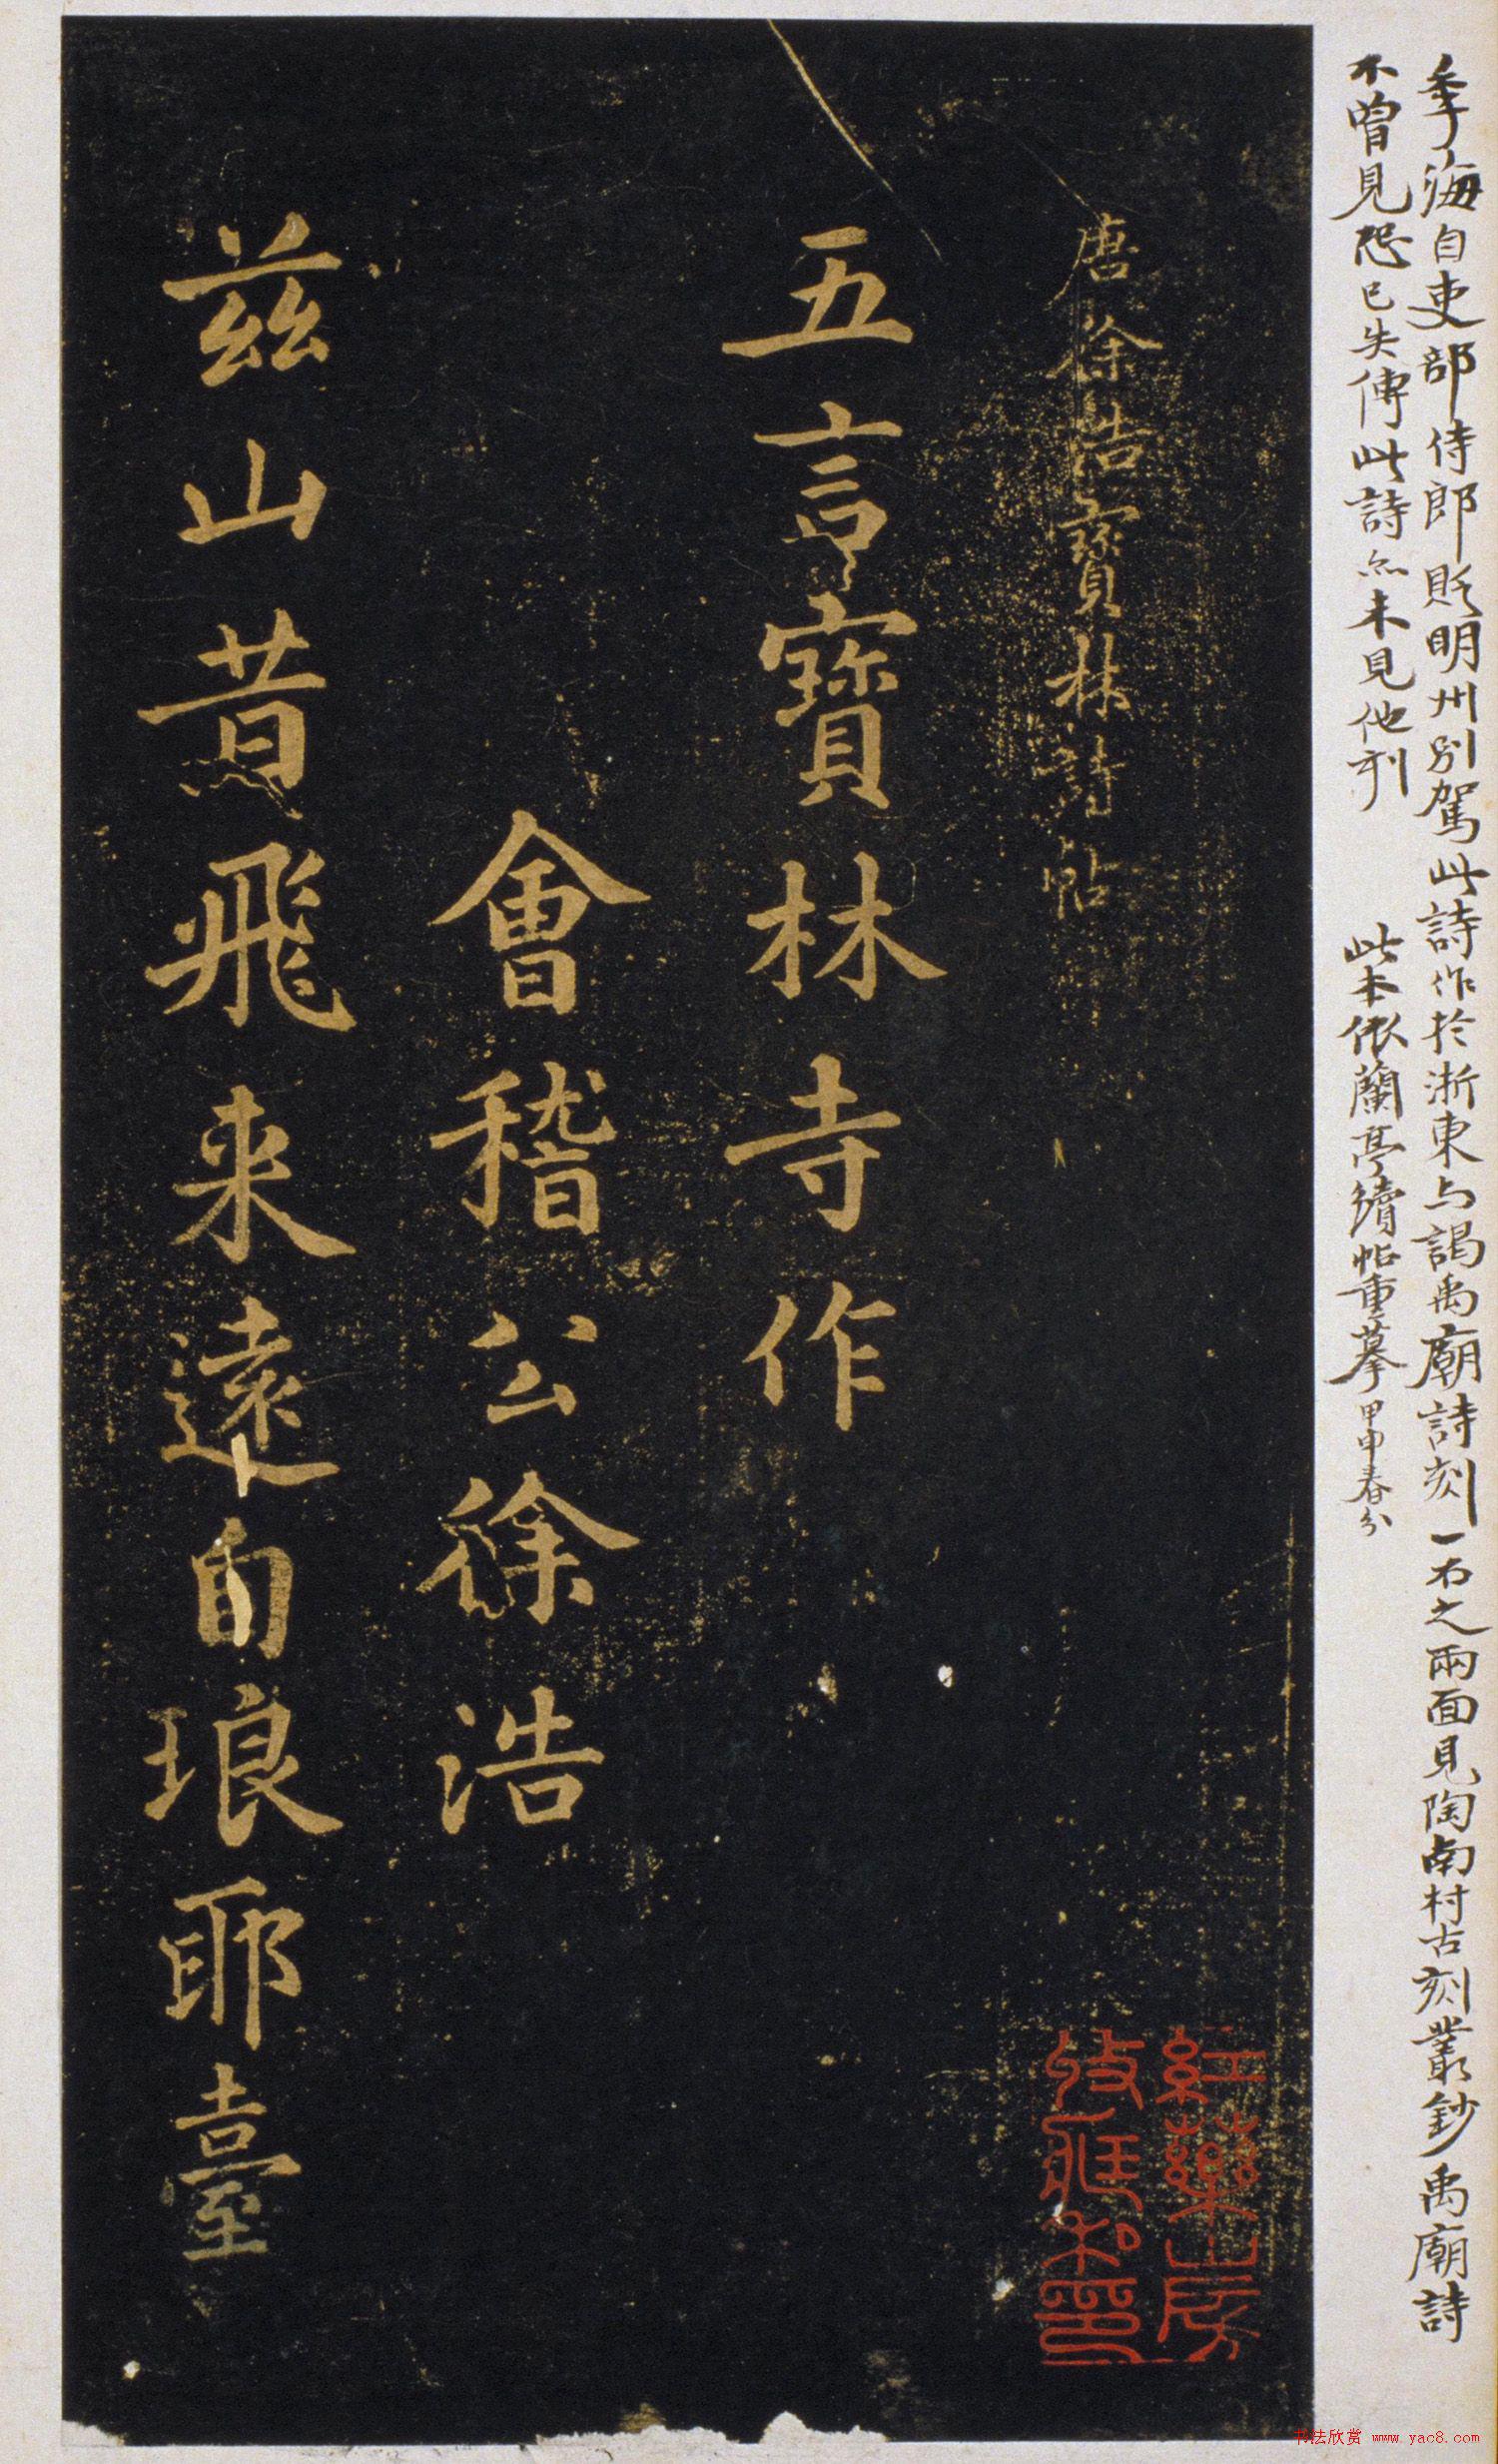 季海自吏部侍郎貶明州別駕此詩作於浙東与謁禹廟詩刻一石之兩面見陶南村古刻叢鈔禹廟詩
不曾見恐已失傳此詩亦未見他刊
此本依蘭亭續帖重摹甲申春分
唐徐浩寶林詩帖
五言寶林寺作
會稽公徐浩
茲山昔飛来遠自琅耶臺
紅藥山房
收藏私印
书法欣赏 www.yac8.com